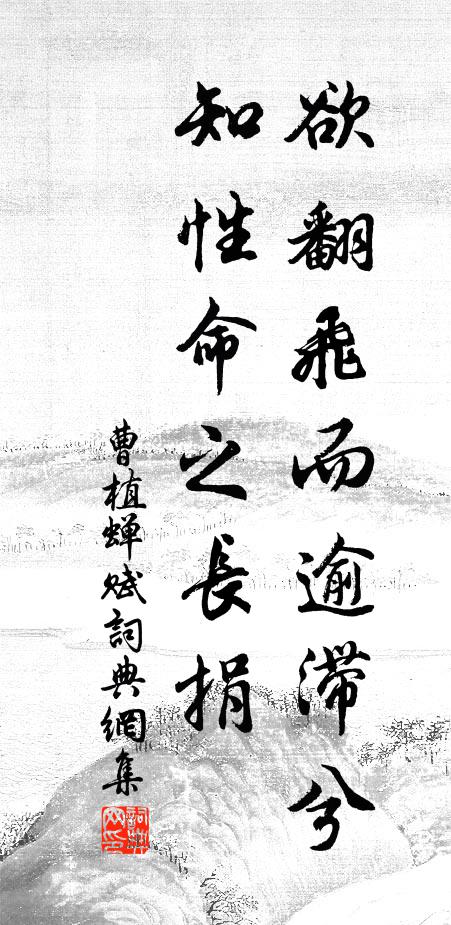 欲翻飛而逾滯兮
知性命之長捐
曹植蝉赋詞典網集